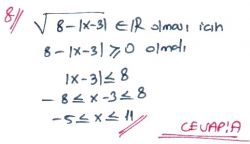 8//
√8-|x-3| ∈ IR olması için
8-|x-3| ≥ 0 olmalı
|x-3| ≤ 8
-8 ≤ x-3 ≤ 8
-5 ≤ x ≤ 11
CEVAP:A